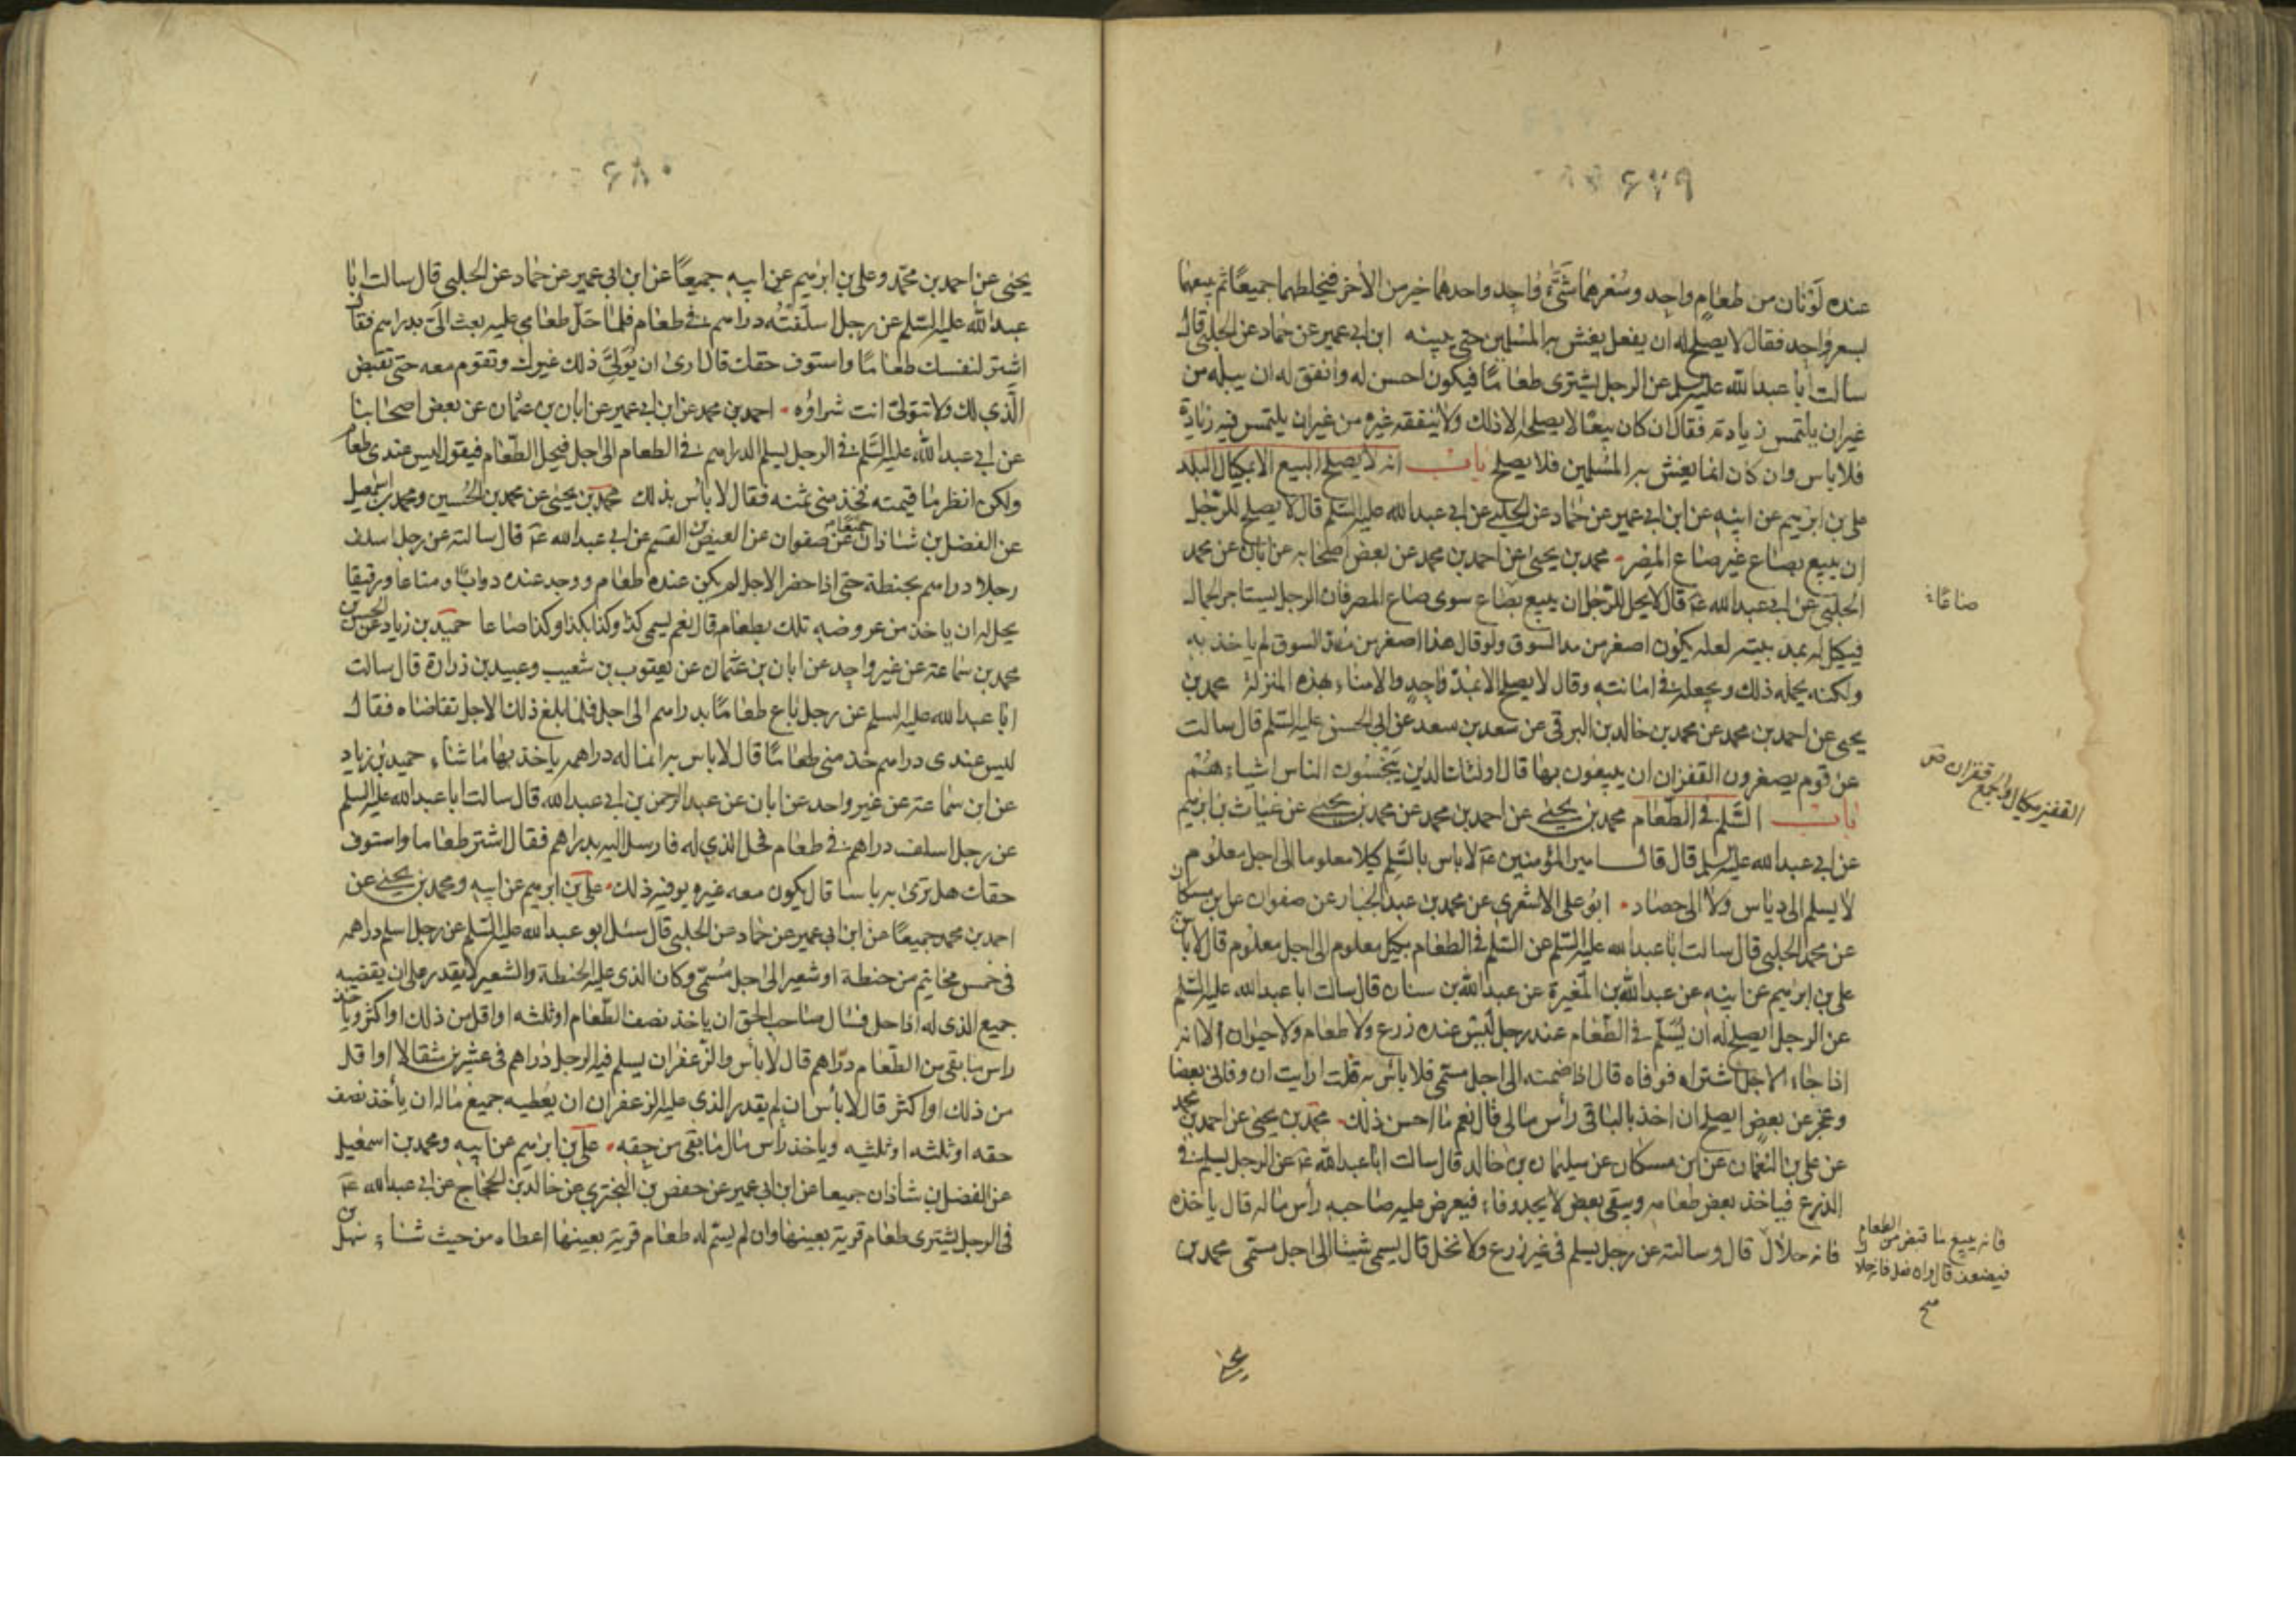 ٦٧٩
عنده لونان من طعام واحد وسعرهما شتى واحد واحدهما خير من الآخر فيخلطهما جميعا ثم يبيعهما
بسعر واحد فقال لا يصلح له ان يفعل يغش به المسلمين حتى يبينه ابن ابي عمير عن حماد عن الحلبي قال
سالت ابا عبد الله عليه السلم عن الرجل يشترى طعاما فيكون احسن له وانفق له ان يبله من
غير ان يلتمس زيادته فقال ان كان بيعا لا يصلحه الا ذلك ولا ينفقه غيره من غير ان يلتمس فيه زيادة
فلا باس وان كان انما يغش به المسلمين فلا يصلح باب انه لا يصلح البيع الا بمكيال البلد
على بن ابرهيم عن ابيه عن ابن ابي عمير عن حماد عن الحلبي عن ابي عبد الله عليه السلم قال لا يصلح للرجل
ان يبيع بصاع غير صاع المصر محمد بن يحيى عن احمد بن محمد عن بعض اصحابه عن ابان عن محمد
الحلبي عن ابي عبد الله ع قال لا يحل للرجل ان يبيع بصاع سوى صاع المصر فان الرجل يستاجر الجمال
صاعا
فيكيل له بمد بيته لعله يكون اصغر من مد السوق ولو قال هذا اصغر من مد السوق لم ياخذ به
ولكنه يحمله ذلك ويجعله في امانته وقال لا يصلح الا مد واحد والامناء بهذه المنزلة محمد بن
يحيى عن احمد بن محمد عن محمد بن خالد بن البرقى عن سعد بن سعد عن ابي الحسن عليه السلم قال سالت
عن قوم يصغرون القفزان ان يبيعون بها قال اولئك الذين يبخسون الناس اشياءهم
القفيز مكيال والجمع قفزان ص
باب السلم في الطعام محمد بن يحيى عن احمد بن محمد عن محمد بن يحيى عن غياث بن ابرهيم
عن ابي عبد الله عليه السلم قال قال امير المؤمنين ع لا باس بالسلم كيلا معلوما الى اجل معلوم
لا يسلم الى دياس ولا الى حصاد ابو على الاشعرى عن محمد بن عبد الجبار عن صفوان عن ابن مسكان
عن محمد الحلبي قال سالت ابا عبد الله عليه السلم عن السلم في الطعام بكيل معلوم الى اجل معلوم قال لا باس
على بن ابرهيم عن ابيه عن عبد الله بن المغيرة عن عبد الله بن سنان قال سالت ابا عبد الله عليه السلم
عن الرجل ايصلح له ان يسلم في الطعام عند رجل ليس عنده زرع ولا طعام ولا حيوان الا انه
اذا جاء الاجل اشتراه فوفاه قال اذا ضمنه الى اجل مسمى فلا باس به قلت ارايت ان وفانى بعضا
وعجز عن بعض ايصلح ان اخذ بالباقى رأس مالى قال نعم ما احسن ذلك محمد بن يحيى عن احمد بن محمد
عن على بن النعمان عن ابن مسكان عن سليمان بن خالد قال سالت ابا عبد الله ع عن الرجل يسلم في
الزرع فياخذ بعض طعامه ويبقى بعض لا يجد وفاء فيعرض عليه صاحبه رأس ماله قال ياخذه
فانه حلال قال وسالته عن رجل يسلم في غير زرع ولا نخل قال يسمى شيئا الى اجل مسمى محمد بن
فانه يبيع ما قبض من الطعام
فيضعف قال وان فعل فانه حلال
صح
يحيى
٦٨٠
يحيى عن احمد بن محمد وعلى بن ابرهيم عن ابيه جميعا عن ابن ابي عمير عن حماد عن الحلبي قال سالت ابا
عبد الله عليه السلم عن رجل اسلفته دراهم في طعام فلما حل طعامى عليه بعث الى بدراهم فقال
اشتر لنفسك طعاما واستوف حقك قال ارى ان يولى ذلك غيرك وتقوم معه حتى تقبض
الذى لك ولا تتولى انت شراؤه احمد بن محمد عن ابن ابي عمير عن ابان بن عثمان عن بعض اصحابنا
عن ابي عبد الله عليه السلم في الرجل يسلم الدراهم في الطعام الى اجل فيحل الطعام فيقول ليس عندى طعام
ولكن انظر ما قيمته فخذ منى ثمنه فقال لا باس بذلك محمد بن يحيى عن محمد بن الحسين ومحمد بن اسمعيل
عن الفضل بن شاذان جميعا عن صفوان عن العيص بن القسم عن ابي عبد الله ع قال سالته عن رجل اسلف
رجلا دراهم بحنطة حتى اذا حضر الاجل لم يكن عنده طعام ووجد عنده دوابا ومتاعا ورقيقا
يحل له ان ياخذ من عروضه تلك بطعامه قال نعم يسمى كذا وكذا بكذا وكذا صاعا حميد بن زياد عن الحسن بن
محمد بن سماعة عن غير واحد عن ابان بن عثمان عن يعقوب بن شعيب وعبيد بن زرارة قال سالت
ابا عبد الله عليه السلم عن رجل باع طعاما بدراهم الى اجل فلما بلغ ذلك الاجل تقاضاه فقال
ليس عندى دراهم خذ منى طعاما قال لا باس به انما له دراهمه ياخذ بها ما شاء حميد بن زياد
عن ابن سماعة عن غير واحد عن ابان عن عبد الرحمن بن ابي عبد الله قال سالت ابا عبد الله عليه السلم
عن رجل اسلف دراهم في طعام فحل الذى له فارسل اليه بدراهم فقال اشتر طعاما واستوف
حقك هل ترى به باسا قال يكون معه غيره يوفيه ذلك على بن ابرهيم عن ابيه ومحمد بن يحيى عن
احمد بن محمد جميعا عن ابن ابي عمير عن حماد عن الحلبي قال سئل ابو عبد الله عليه السلم عن رجل اسلم دراهمه
في خمس مخاتيم من حنطة او شعير الى اجل مسمى وكان الذى عليه الحنطة والشعير لا يقدر على ان يقضيه
جميع الذى له اذا حل فسال صاحب الحق ان ياخذ نصف الطعام او ثلثه او اقل من ذلك او اكثر وياخذ
راس ما بقى من الطعام دراهم قال لا بأس والزعفران يسلم فيه الرجل دراهم في عشرين مثقالا او اقل
من ذلك او اكثر قال لا بأس ان لم يقدر الذى عليه الزعفران ان يعطيه جميع ماله ان يأخذ نصف
حقه او ثلثه او ثلثيه وياخذ رأس مال ما بقى من حقه على بن ابرهيم عن ابيه ومحمد بن اسمعيل
عن الفضل بن شاذان جميعا عن ابن ابي عمير عن حفص بن البخترى عن خالد بن الحجاج عن ابي عبد الله ع
في الرجل يشترى طعام قرية بعينها وان لم يسم له طعام قرية بعينها اعطاه من حيث شاء سهل بن